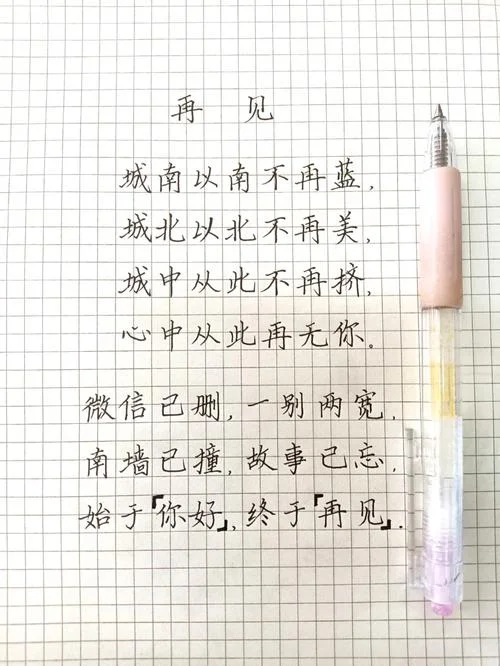 再 见
城南以南不再蓝，
城北以北不再美，
城中从此不再挤，
心中从此再无你。
微信已删，一别两宽，
南墙已撞，故事已忘，
始于「你好」，终于「再见」.